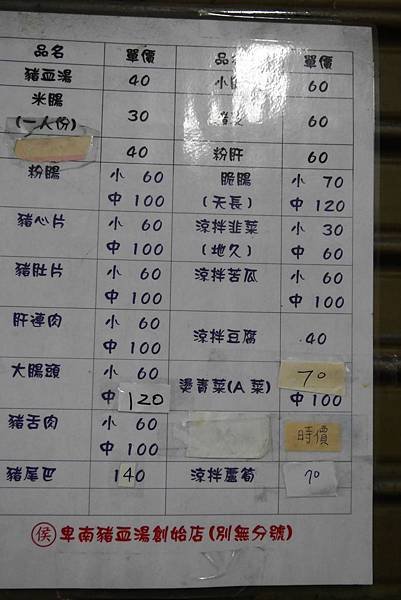 品名 單價 品 單價
豬血湯 40 小 60
米腸
(一人份) 30 60
40 粉肝 60
粉腸 小 60 脆腸 小 70
中 100 (天長) 中 120
豬心片 小 60 涼拌韭菜 小 30
中 100 (地久) 中 60
豬肚片 小 60 涼拌苦瓜 小 60
中 100 中 100
肝連肉 小 60
中 100 涼拌豆腐 40
大腸頭 小 60 燙青菜(A菜) 70
中 120 中 100
豬舌肉 小 60 時價
中 100
豬尾巴 140 涼拌蘆筍 70
侯 卑南豬血湯創始店(別無分號)